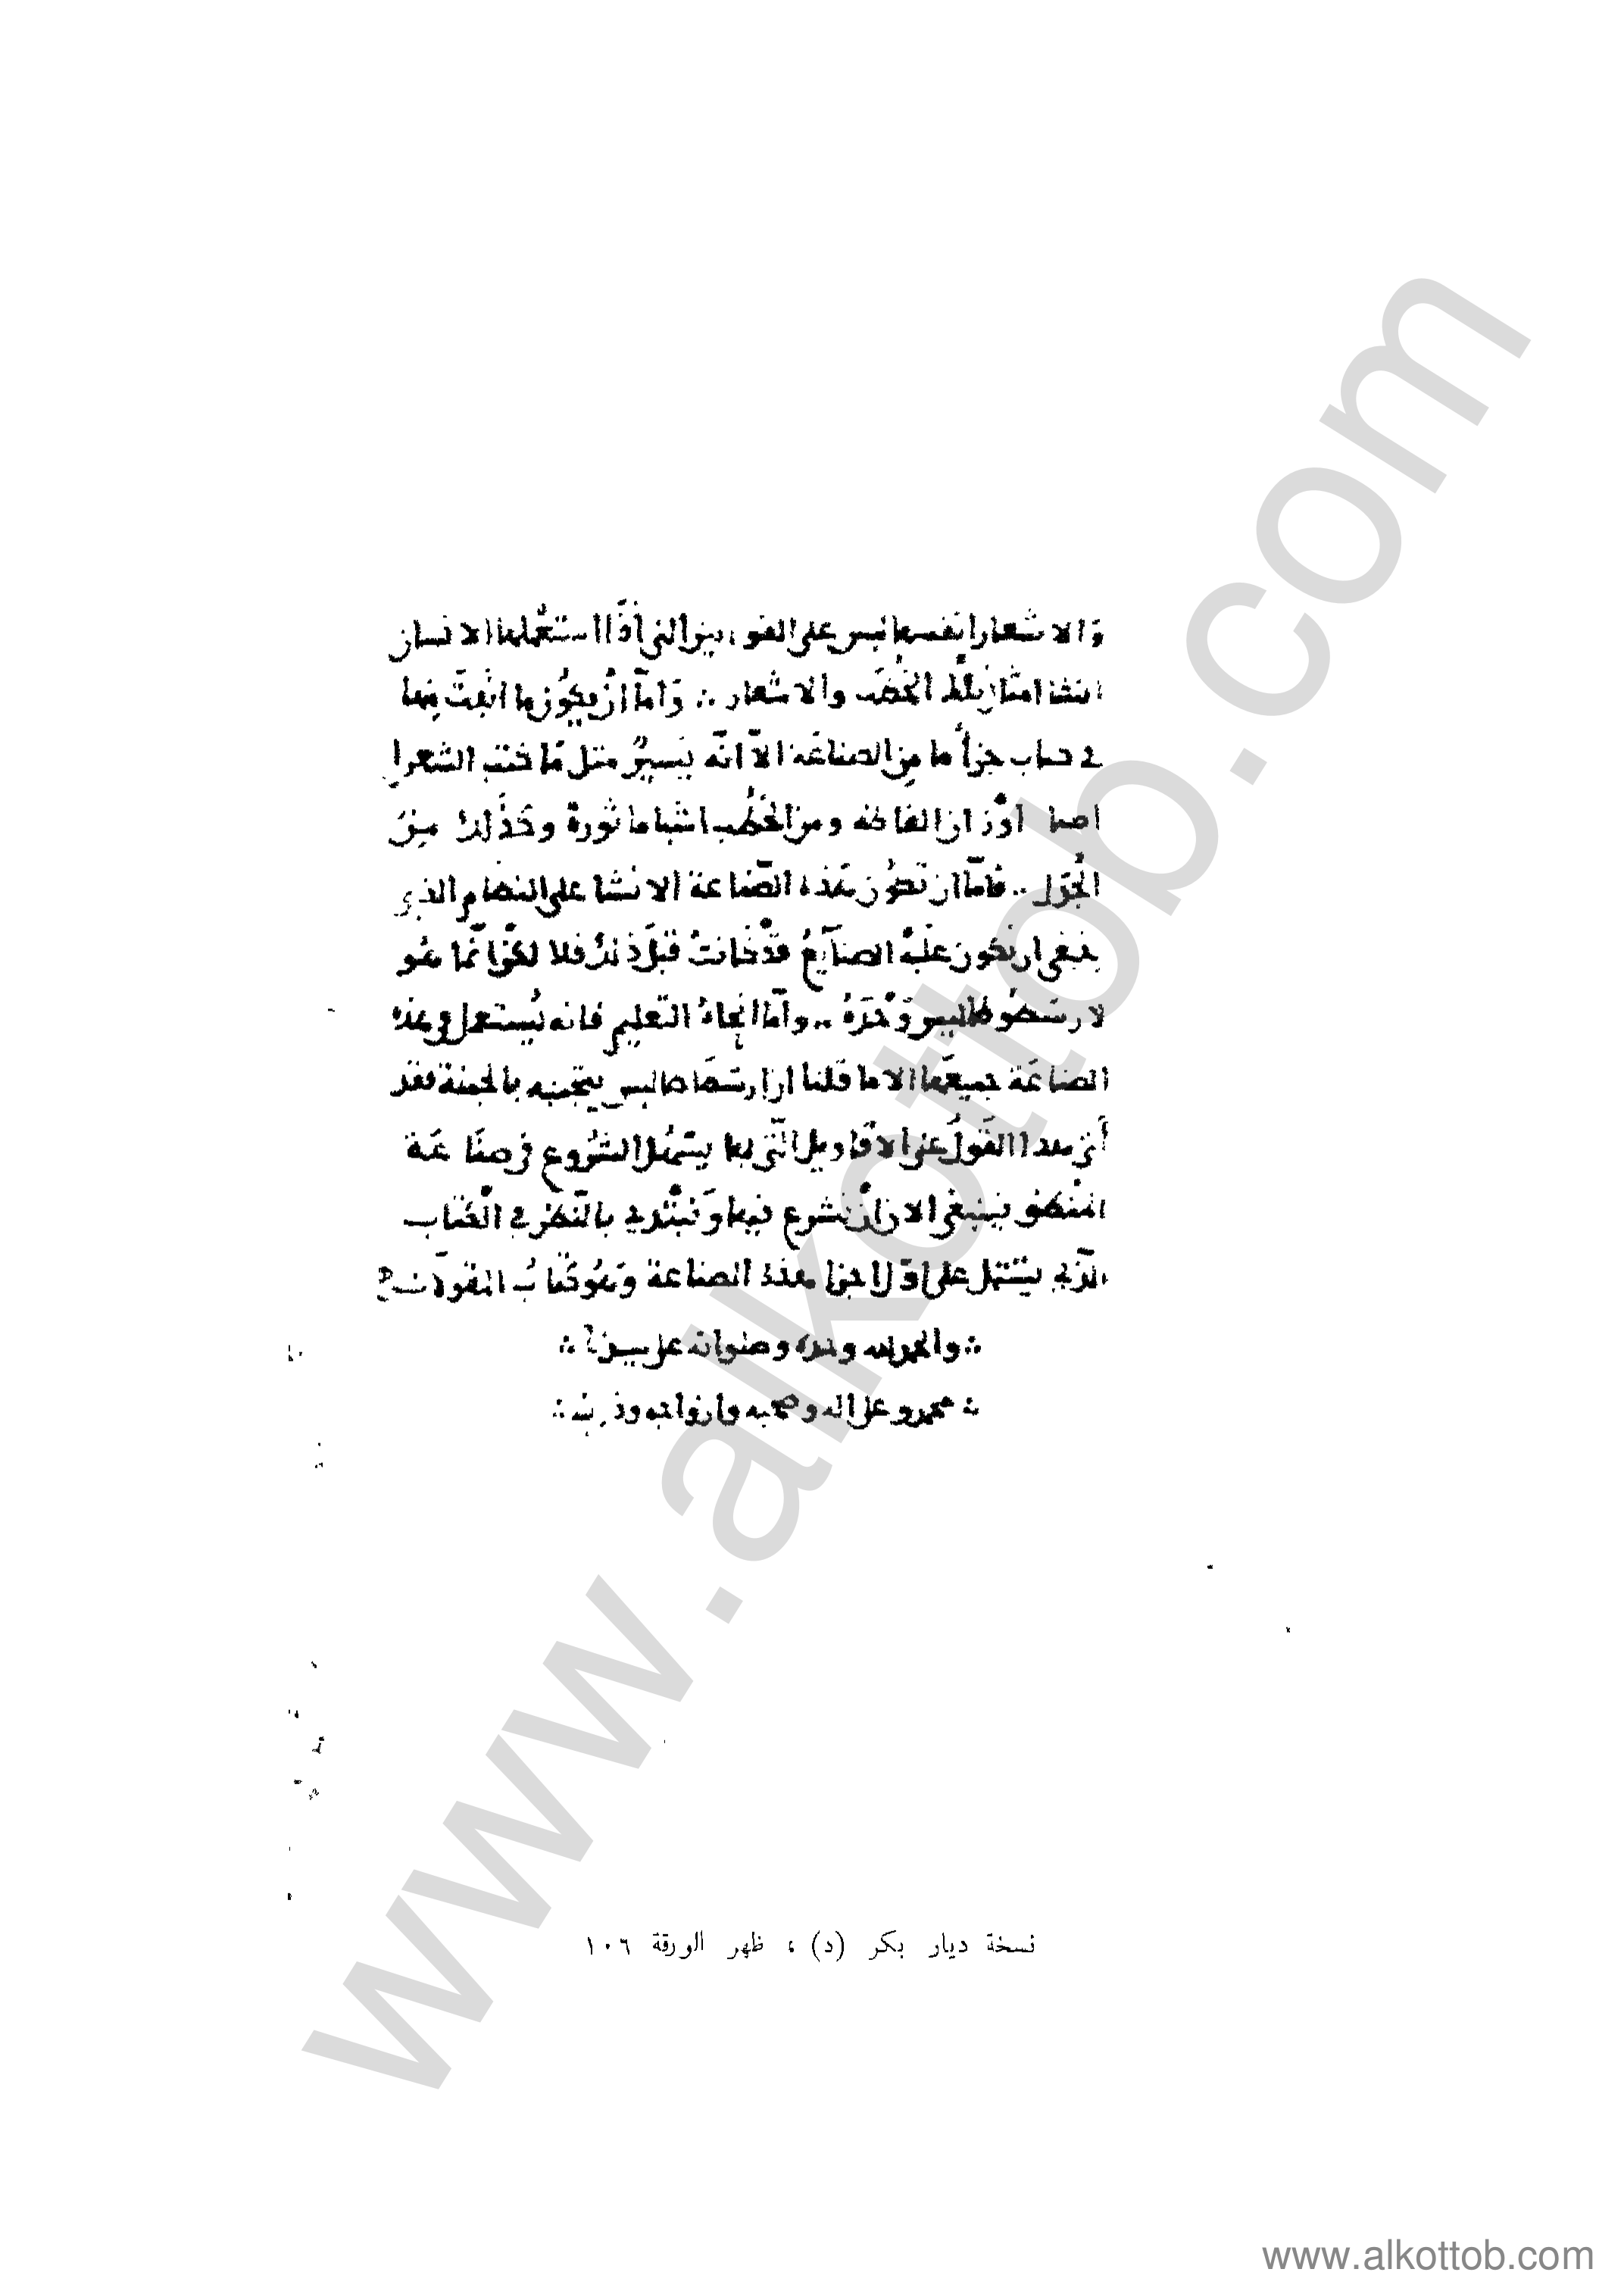 والاشعار انفسها ليس على القوانين التي اذا استعملها الانسان
انشا امثال تلك الخطب والاشعار ∴ واما ان يكون ما اثبت منها
في كتاب جزأ ما من الصناعة الا انه يسير مثل ما كتب الشعرا
اوزان الفاظه ومن الخطب اشيا ماثورة وكذلك من
الجدل ∴ فاما ان تكون هذه الصناعة الانشا على النظام الذي
ينبغي ان تكون عليه الصنايع قد كانت قبل ذلك فلا لكن انما هو
لارسطوطاليس وحده ∴ واما انحاء التعليم فانه يستعمل في هذه
الصناعة جميعها الا ما قلنا ان ارسطاطاليس يتجنبه بالجملة فقد
أتى هذا القول على الاقاويل التي بها يسهل الشروع في صناعة
المنطق فينبغي الان ان نشرع فيها ونبتدي بالنظر في الكتاب
الذي يشتمل على اول اجزا هذه الصناعة وهو كتاب المقولات
∴ والحمد لله وحده وصلواته على سيدنا ∴
∴ محمد وعلى اله وصحبه وازواجه وذريته ∴
نسخة ديار بكر (د) ، ظهر الورقة ١٠٦
www.alkottob.com
www.alkottob.com